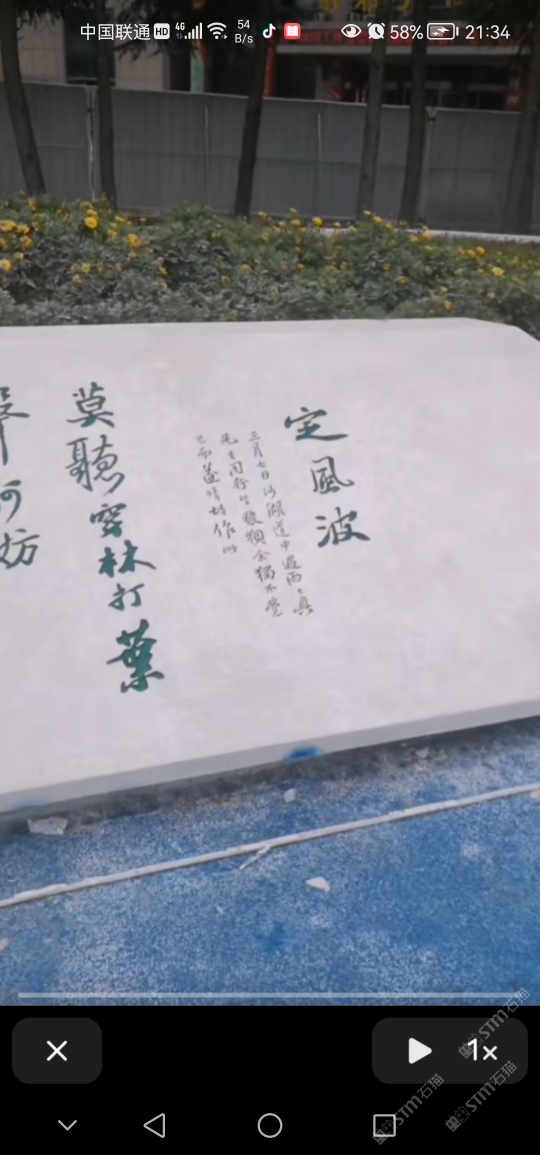 中国联通 HD 4G 54 B/s 58% 21:34
定風波
三月七日沙湖道中遇雨〻具
先去同行皆狼狽余獨不覺
已而遂晴故作此
莫聽穿林打葉
聲何妨
1×
STM石猫
STM石猫
STM石猫